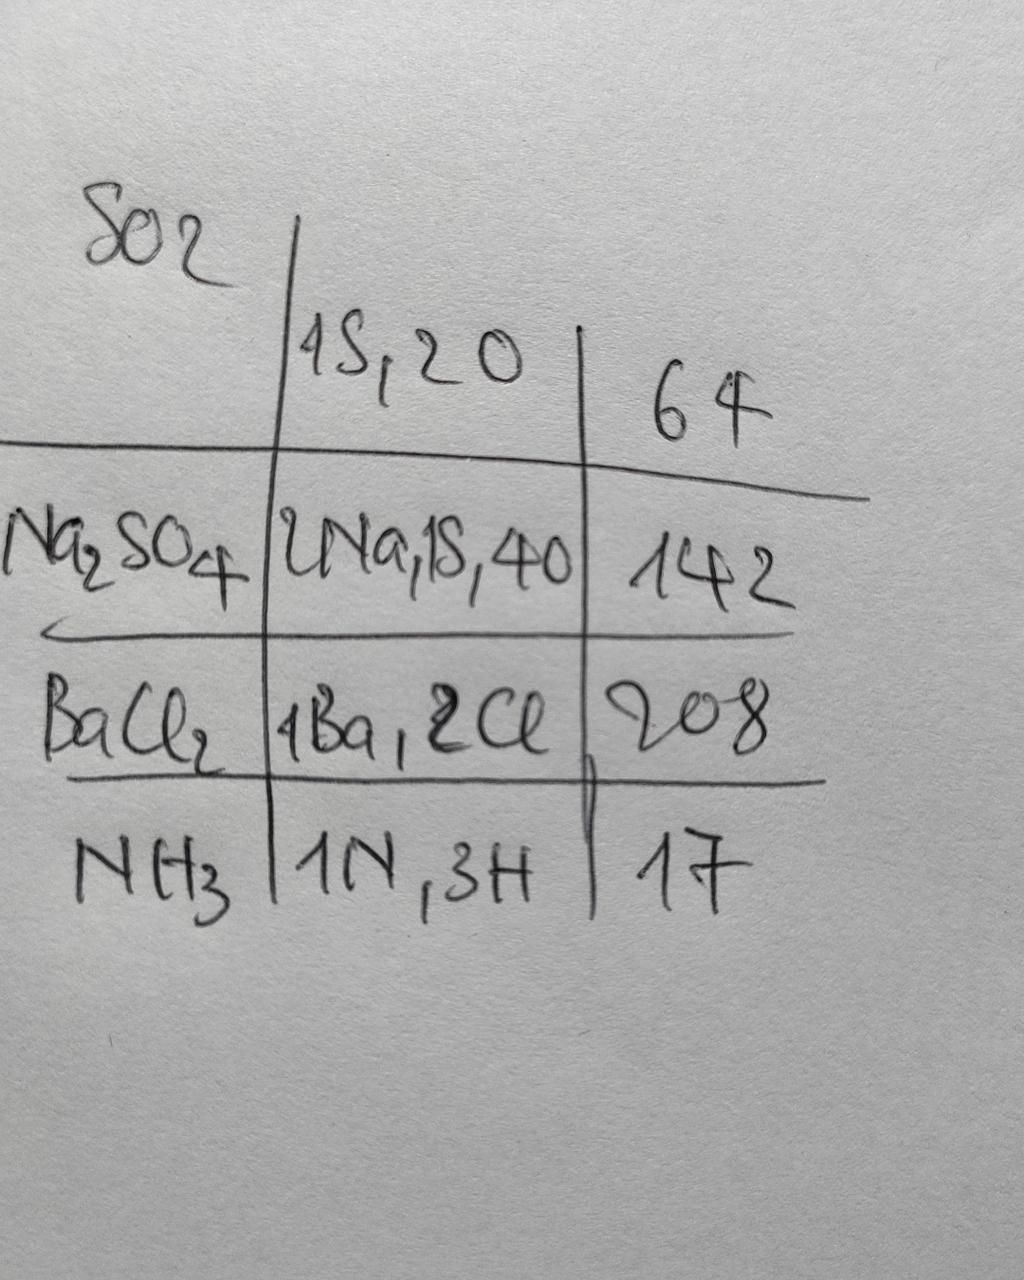 SO2 1S, 2O 64
Na₂SO₄ 2Na, 1S, 4O 142
BaCl₂ 1Ba, 2Cl 208
NH₃ 1N, 3H 17